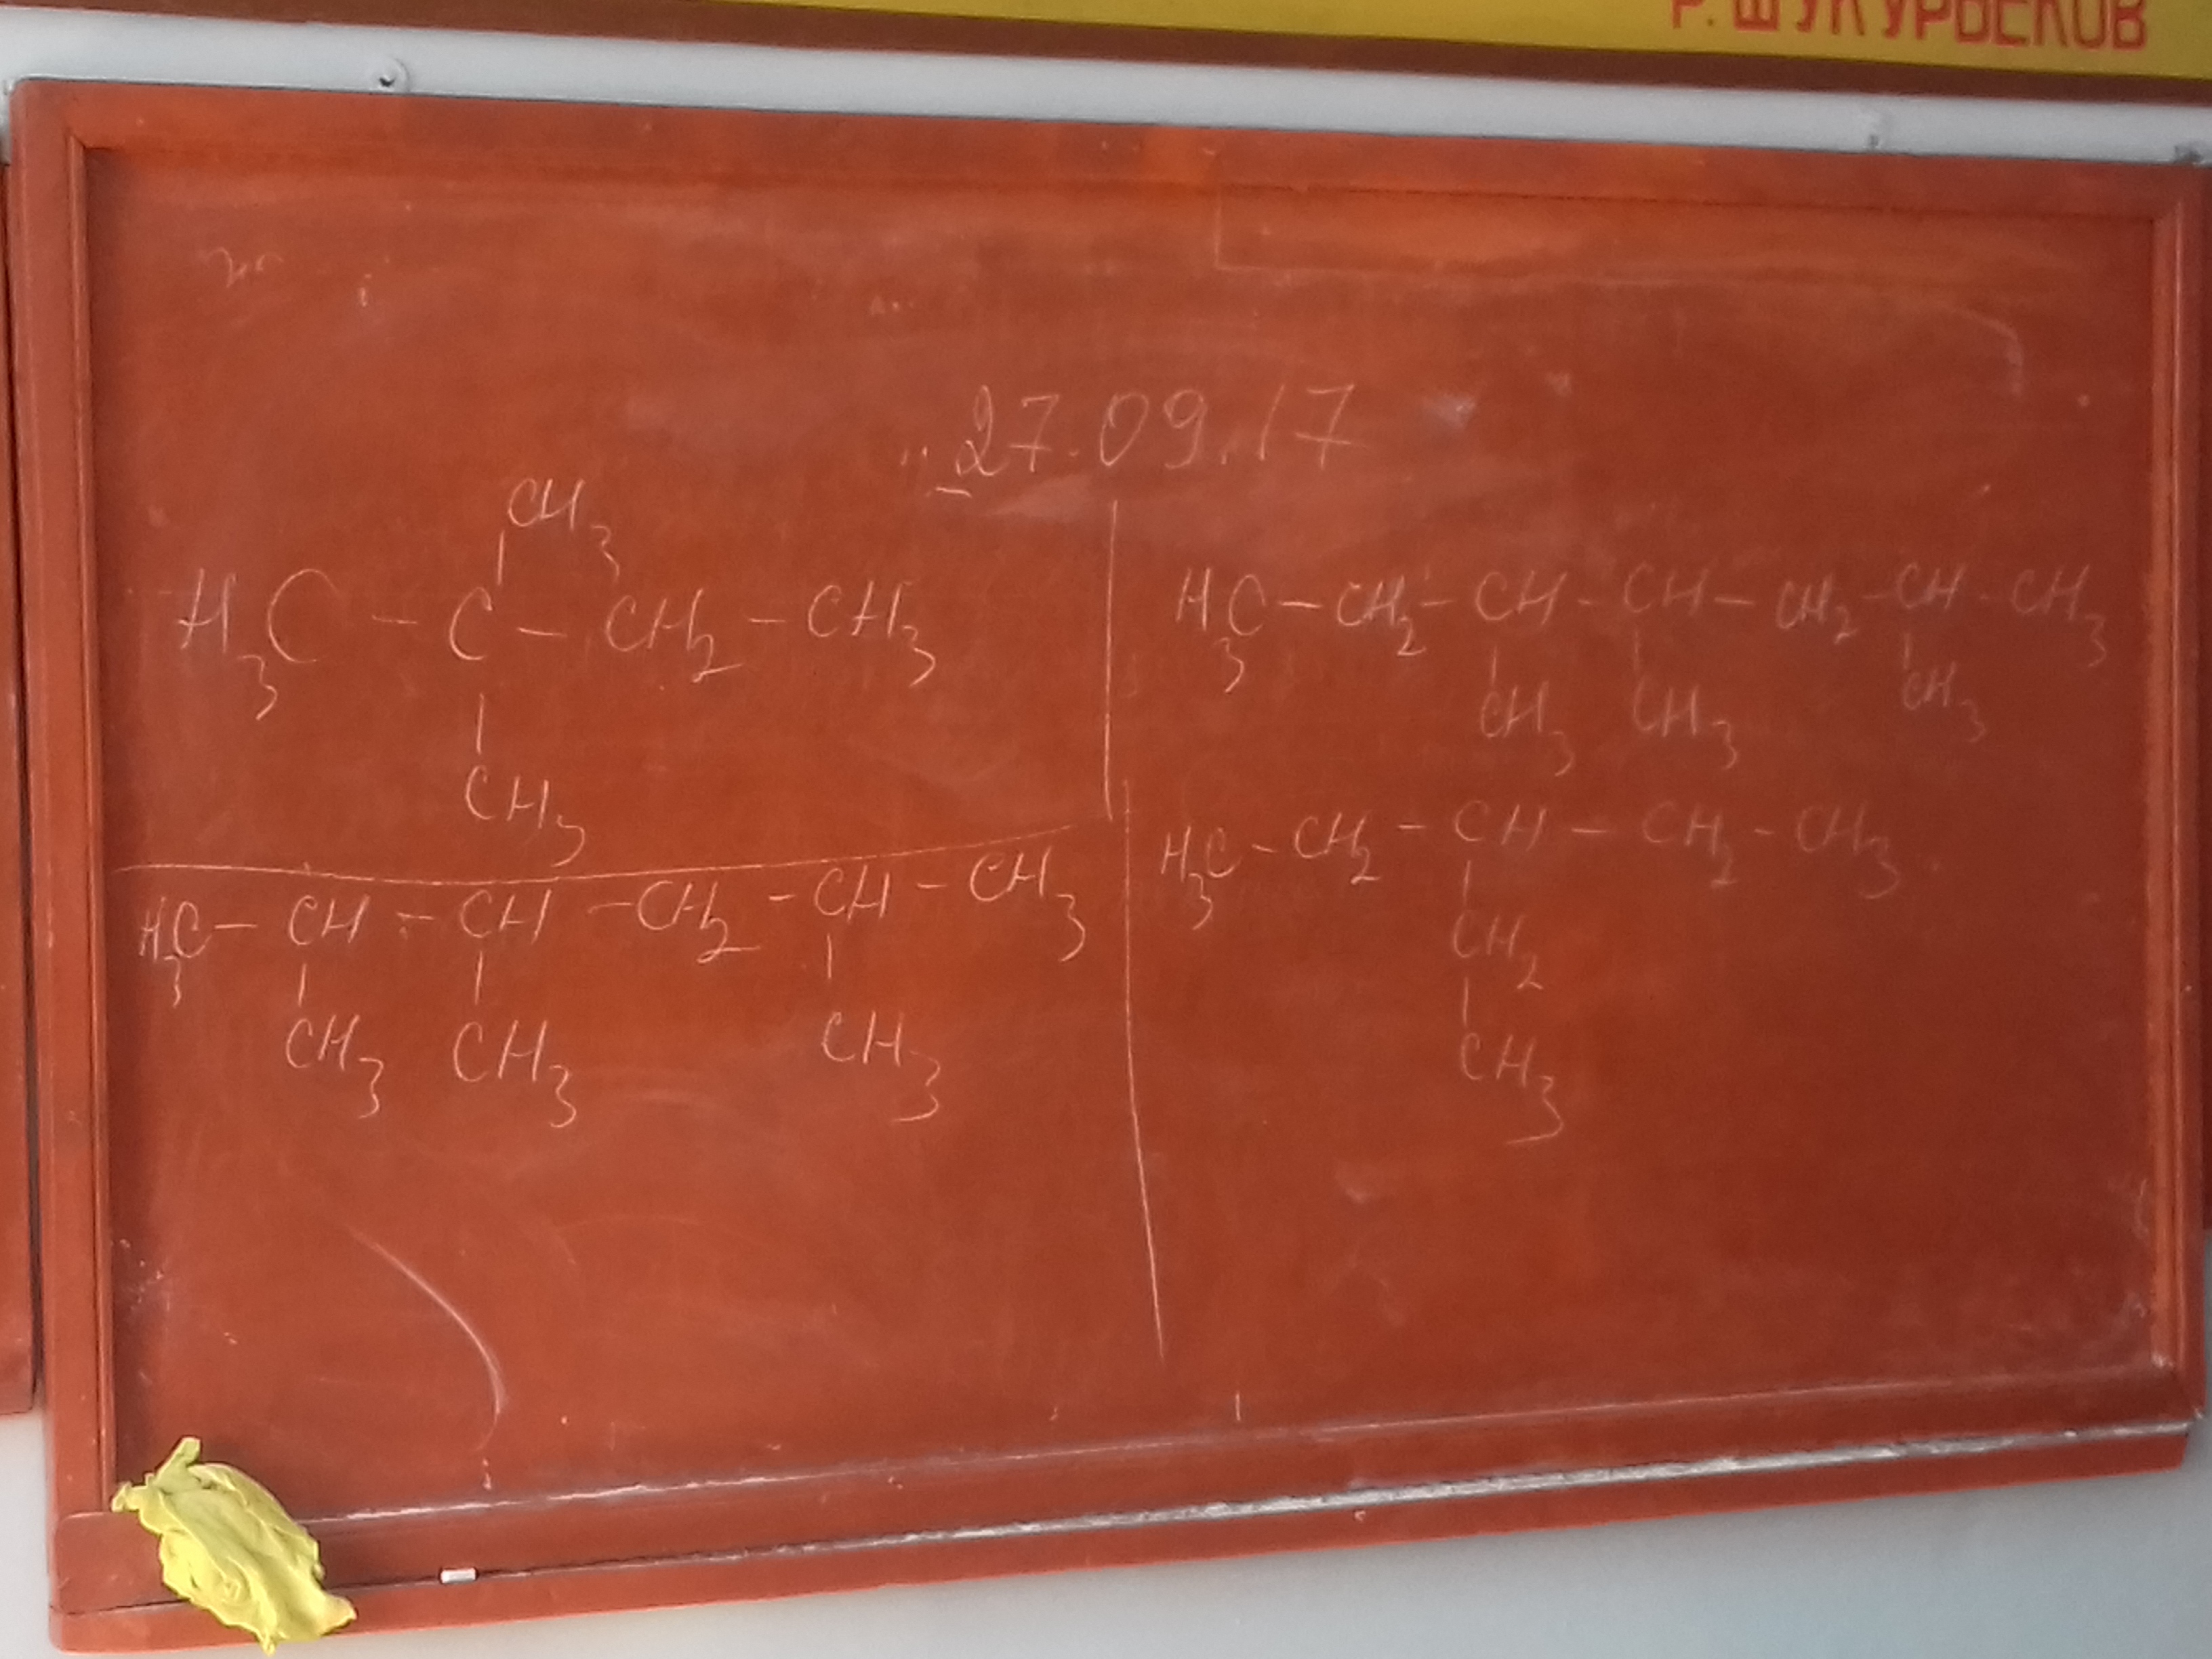 Р. ШУКУРБЕКОВ
27.09.17
CH3
H3C - C - CH2 - CH3
CH3
H3C - CH2 - CH - CH - CH2 - CH - CH3
CH3 CH3 CH3
H3C - CH - CH - CH2 - CH - CH3
CH3 CH3 CH3
H3C - CH2 - CH - CH2 - CH3
CH2
CH3